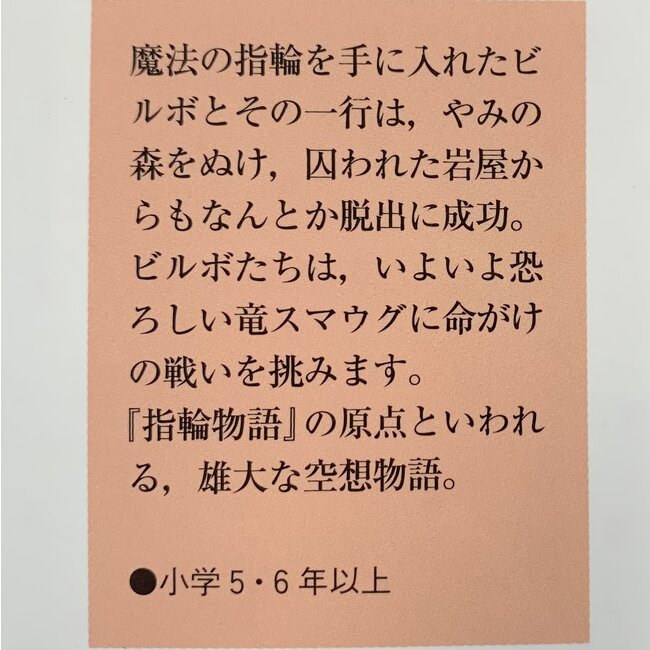 魔法の指輪を手に入れたビ
ルボとその一行は，やみの
森をぬけ，囚われた岩屋か
らもなんとか脱出に成功。
ビルボたちは，いよいよ恐
ろしい竜スマウグに命がけ
の戦いを挑みます。
『指輪物語』の原点といわれ
る，雄大な空想物語。
●小学5・6年以上